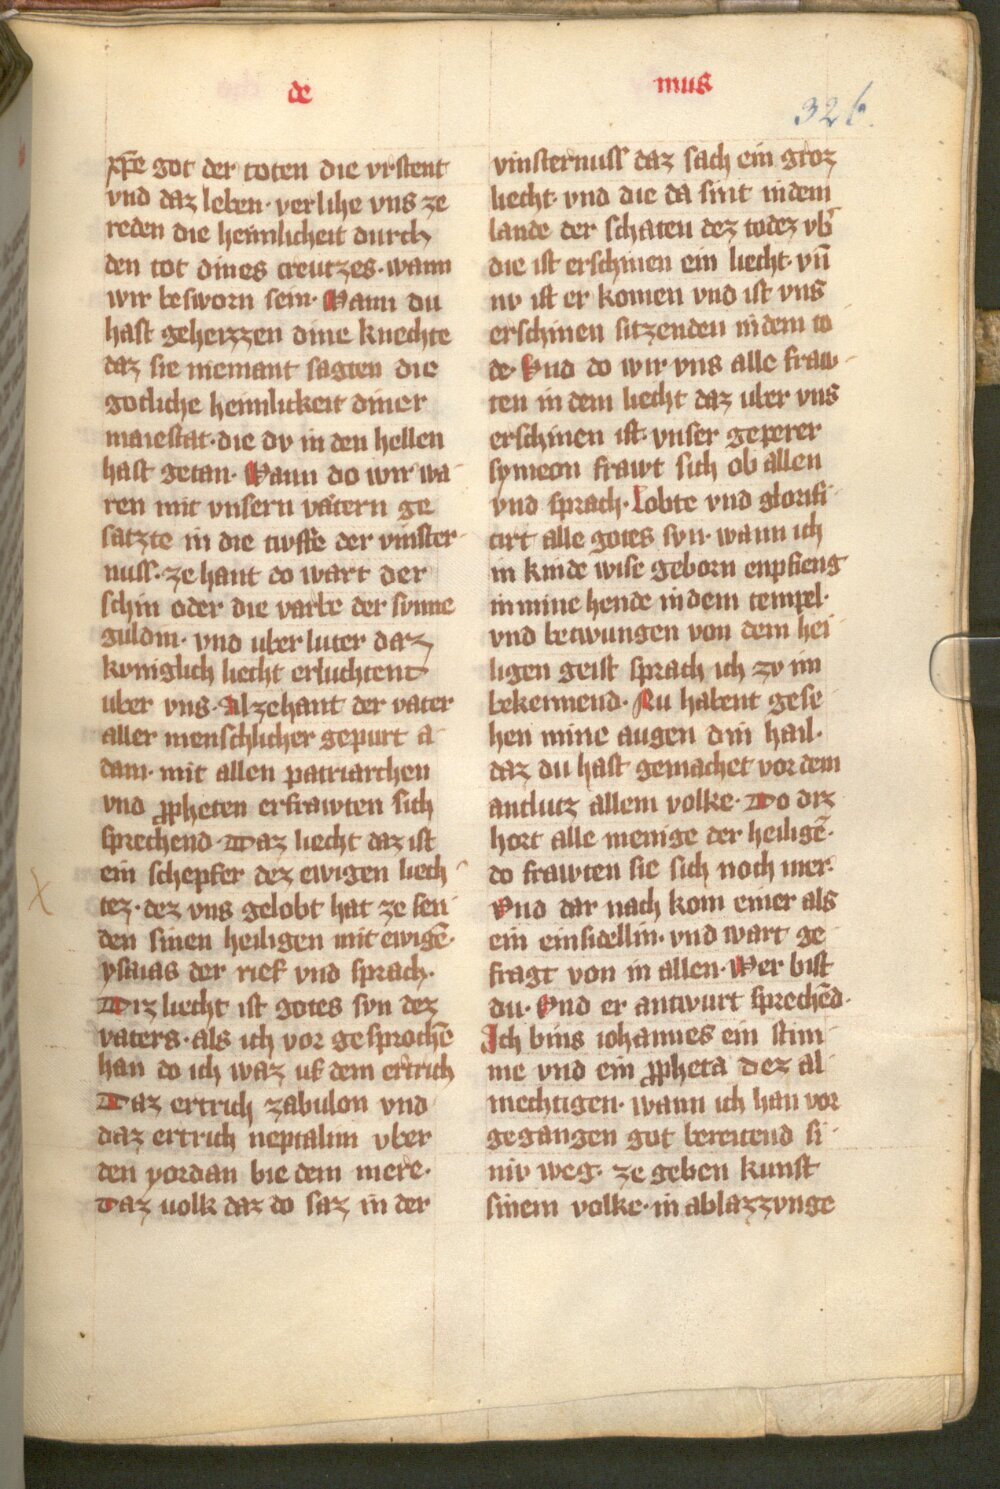 de
mus
326.
xp̄e got der toten die vrstent
vnd daz leben· verlihe vns ze
reden die heimlicheit durch
den tot dines creutzes· wann
wir besworn sein· Wann du
hast geheizzen dine knechte
daz sie niemant sagten die
gotliche heimlickeit diner
maiestat· die dv in den hellen
hast getan· Wann do wir wa
ren mit vnsern vätern ge
satzte in die twffe der vinster
nuss· ze hant do wart der
schin oder die varbe der sunne
guldin· vnd uber luter daz
kvniglich liecht erluchtent
uber vns· Alzehant der vater
aller menschlicher gepurt a
dam· mit allen patriarchen
vnd ꝓpheten erfrawten sich
sprechend· Daz liecht daz ist
ein schepfer dez ewigen liech
tez· dez vns gelobt hat ze sen
den sinen heiligen mit ewigē·
ysaias der rief vnd sprach·
Diz liecht ist gotes syn dez
vaters· als ich vor gesprochē
han do ich waz uf dem ertrich
Daz ertrich zabulon vnd
daz ertrich neptalim vber
den yordan bie dem mere·
Daz uolk daz do saz in der
vinsternuss daz sach ein groz
liecht· vnd die da sint in dem
lande der schaten dez todez vb̄
die ist erschinen ein liecht· vn̄
nv ist er komen vnd ist vns
erschinen sitzenden in dem to
de· Vnd do wir vns alle fraw
ten in dem liecht daz uber vns
erschinen ist· vnser geperer
symeon frawt sich ob allen
vnd sprach· Lobte vnd glorifi
cirt alle gotes syn· wann ich
in kinde wise geborn enpfieng
in mine hende in dem tempel·
vnd betwungen von dem hei
ligen geist sprach ich zv im
bekennend· Nu habent gese
hen mine augen din hail·
daz du hast gemachet vor dem
antlutz allem volke· Do diz
hort alle menige der heiligē·
do frawten sie sich noch mer·
Vnd dar nach kom einer als
ein einsidellin· vnd wart ge
fragt von in allen· Wer bist
du· Vnd er antwurt sprechēd·
Ich bins iohannes ein stim
me vnd ein ꝓpheta dez al
mechtigen· wann ich han vor
gegangen got bereitend si
niv weg· ze geben kunst
sinem volke· in ablazzvnge